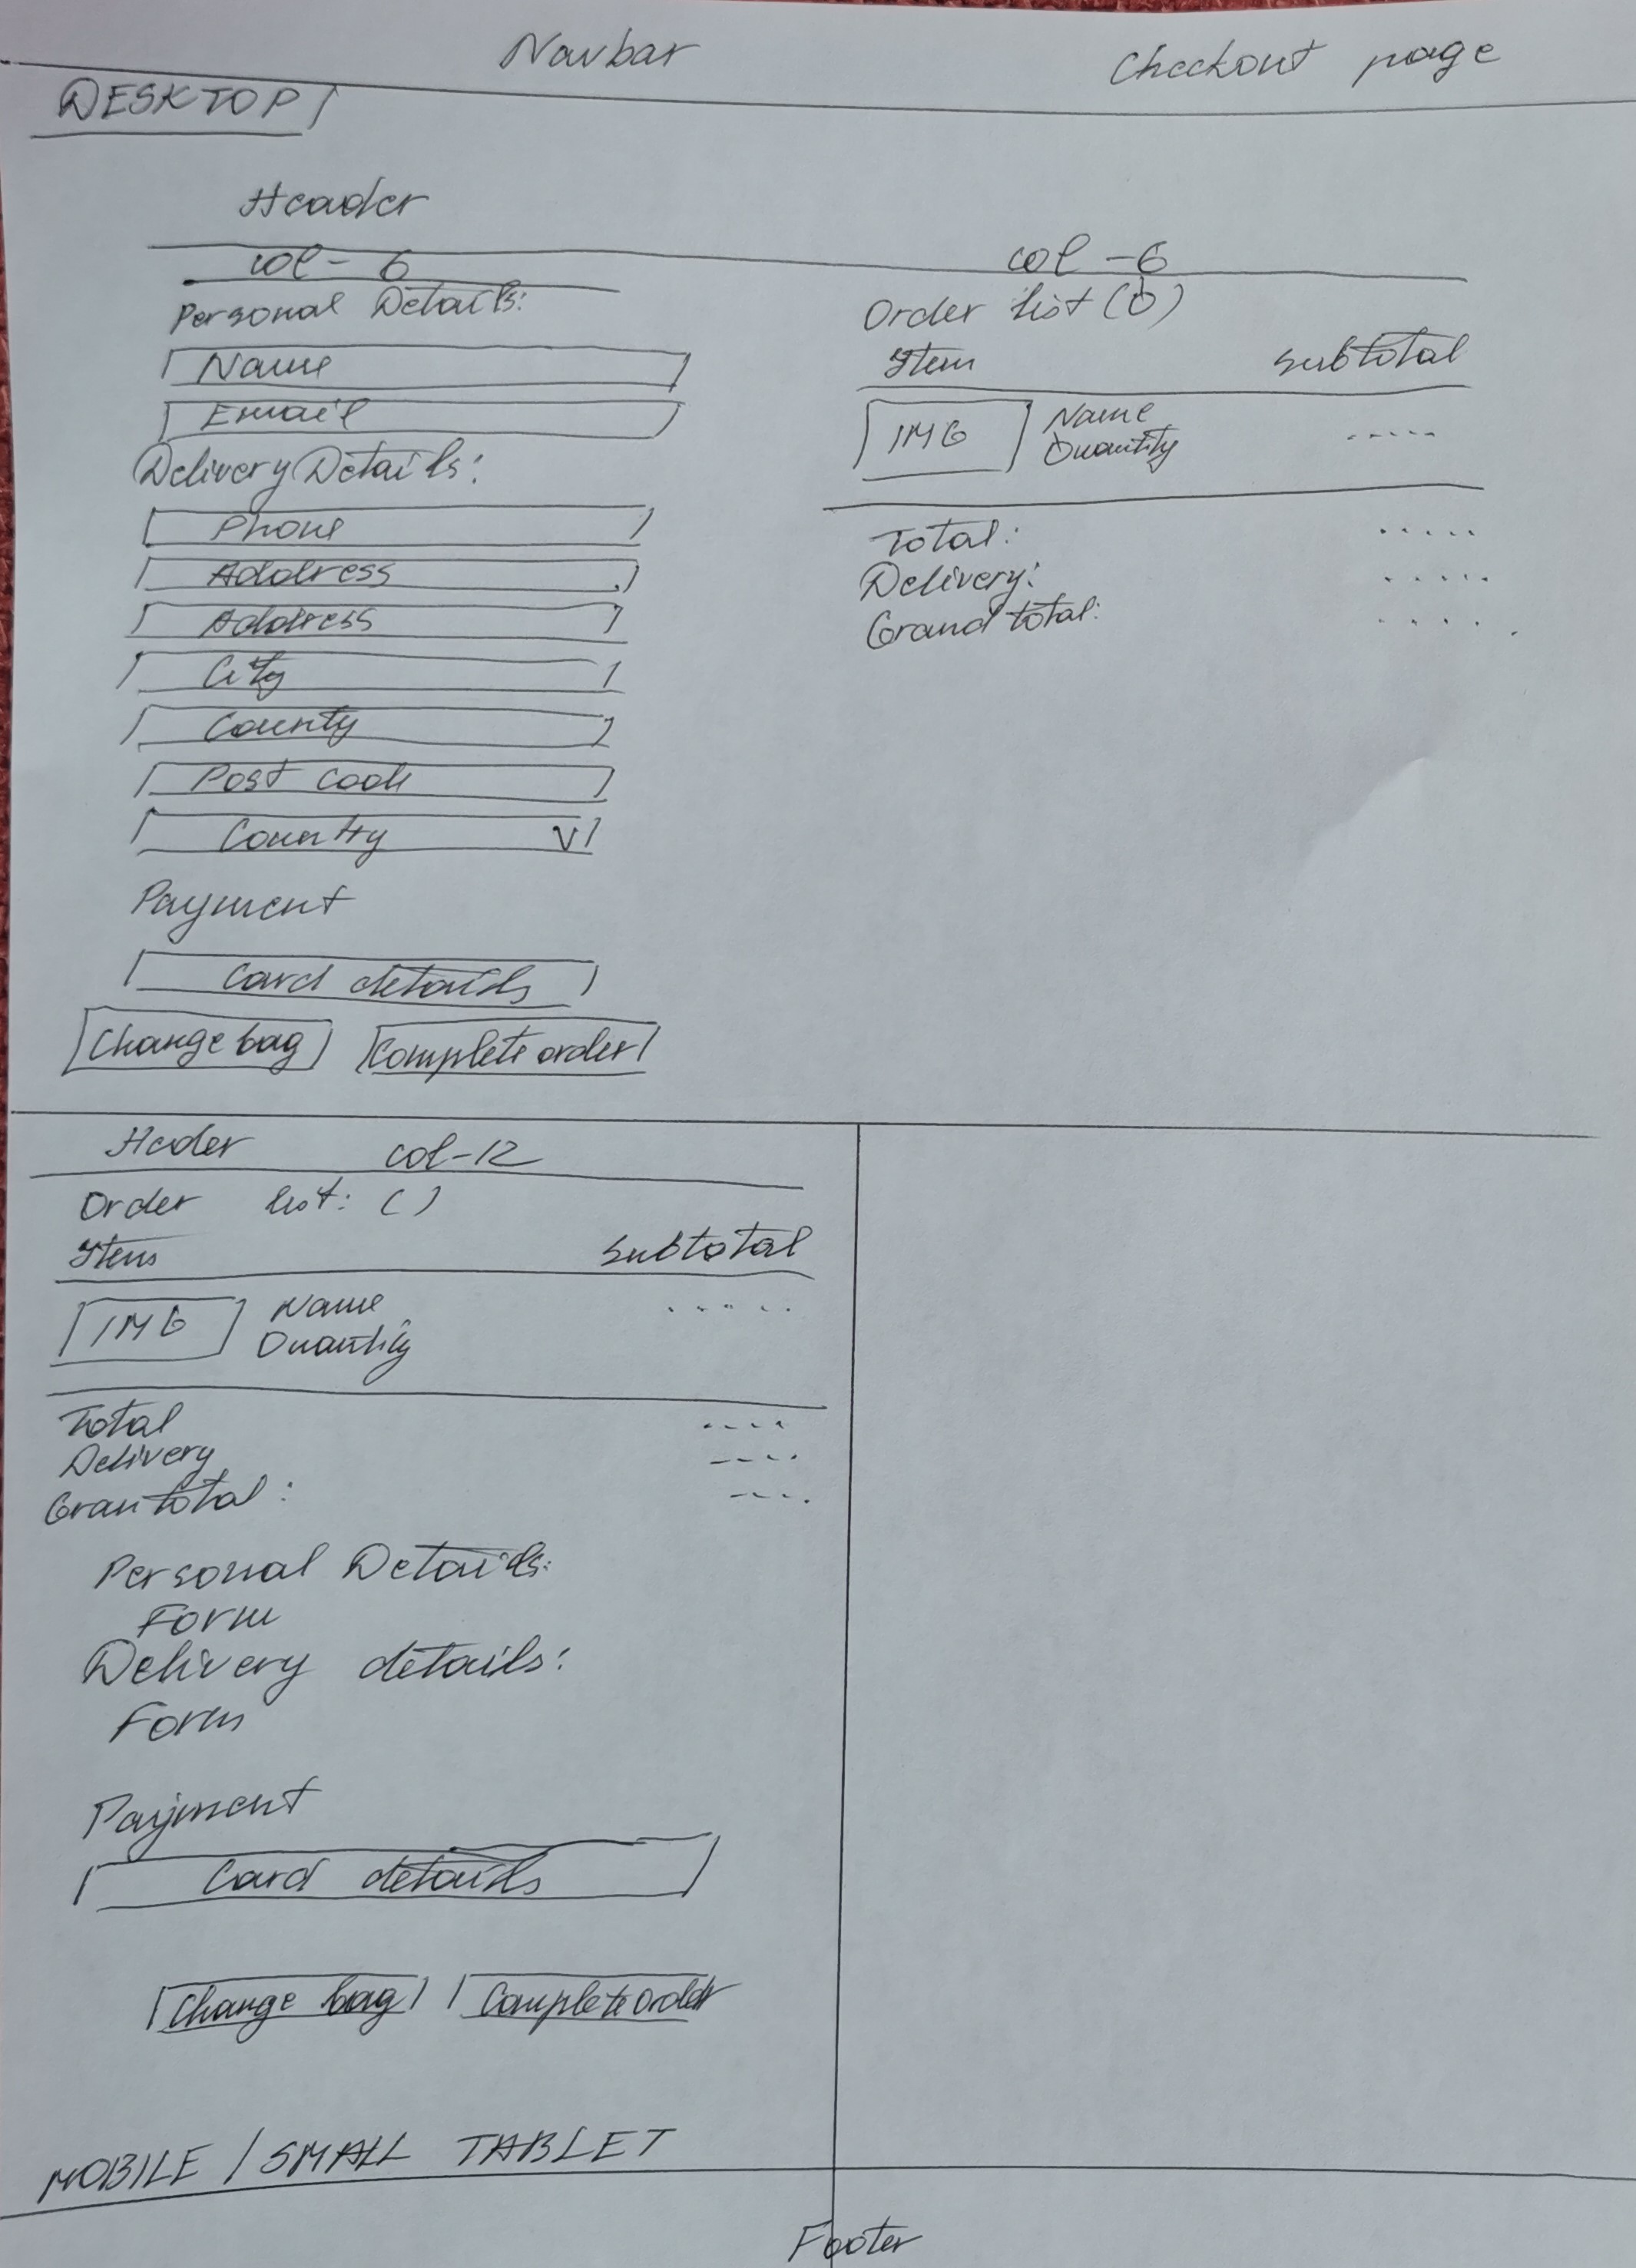 Navbar
Checkout page
DESKTOP
Header
col-6
Personal Details:
Name
Email
Delivery Details:
Phone
Address
Address
City
County
Post code
Country V
Payment
Card details
Change bag Complete order
col-6
Order list (0)
Item Subtotal
IMG Name
Quantity
-----
Total: .....
Delivery: .....
Grand total: .....
Hader col-12
Order list: ( )
Item Subtotal
IMG Name .....
Quantity
Total ----
Delivery ----
Gran total: ---.
Personal Details:
Form
Delivery details:
Form
Payment
Card details
Change bag Complete order
MOBILE / SMALL TABLET
Footer